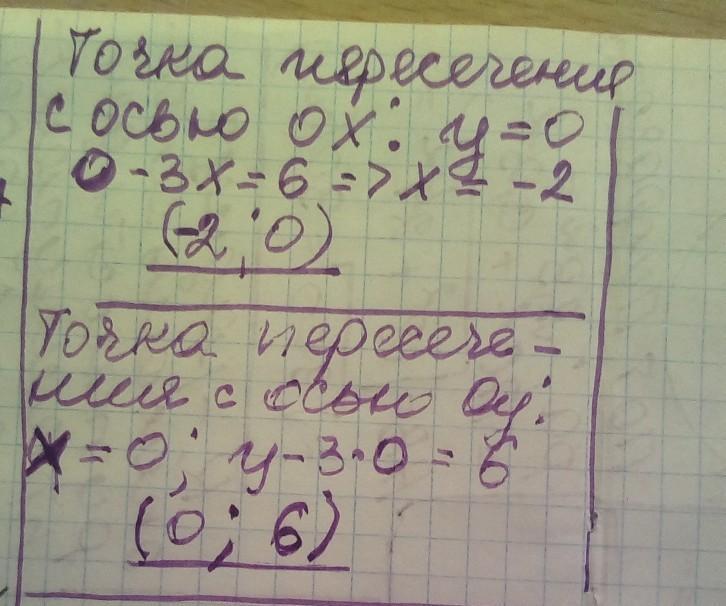 Точка пересечения
с осью ОХ: y = 0
0 - 3х = 6 => х = -2
(-2; 0)
Точка пересече-
ния с осью Оу:
х = 0; у - 3·0 = 6
(0; 6)